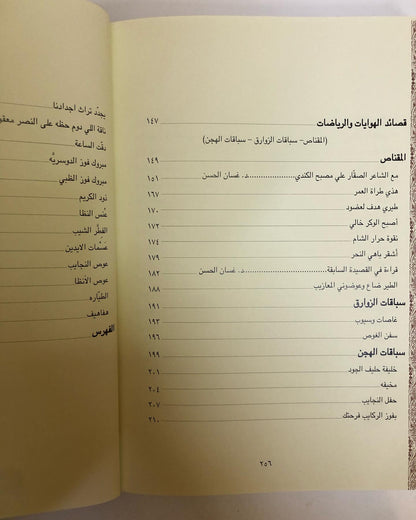 قصائد الهوايات والرياضات ١٤٧
(المقناص– سباقات الزوارق – سباقات الهجن)
المقناص ١٤٩
مع الشاعر الصقّار علي مصبح الكندي د. غسان الحسن ١٥١
هذي طراة العمر ١٦٧
طيري هدف لعضود ١٧٠
أصبح الوكر خالي ١٧٢
نقوة حرار الشام ١٧٤
أشقر باهي النحر ١٧٩
قراءة في القصيدة السابقة د. غسان الحسن ١٨٢
الطير ضاع وعوضوني المعازيب ١٨٨
سباقات الزوارق ١٩١
غاصات وسيوب ١٩٣
سفن الغوص ١٩٦
سباقات الهجن ١٩٩
خليفة حليف الجود ٢٠١
مخيفه ٢٠٤
حفل النجايب ٢٠٧
بفوز الركايب فرحتك ٢١٠
٢٥٦
يجدّد تراث اجدادنا
ناقة اللي دوم حظه على النصر
دقّت الساعة
مبروك فوز الدوسريّه
مبروك فوز الظبي
نود الكريم
عنس النظا
الفطر الشيب
عوص النجايب
عوص الأنظا
الطيّاره
هفاهيف
الفهرس